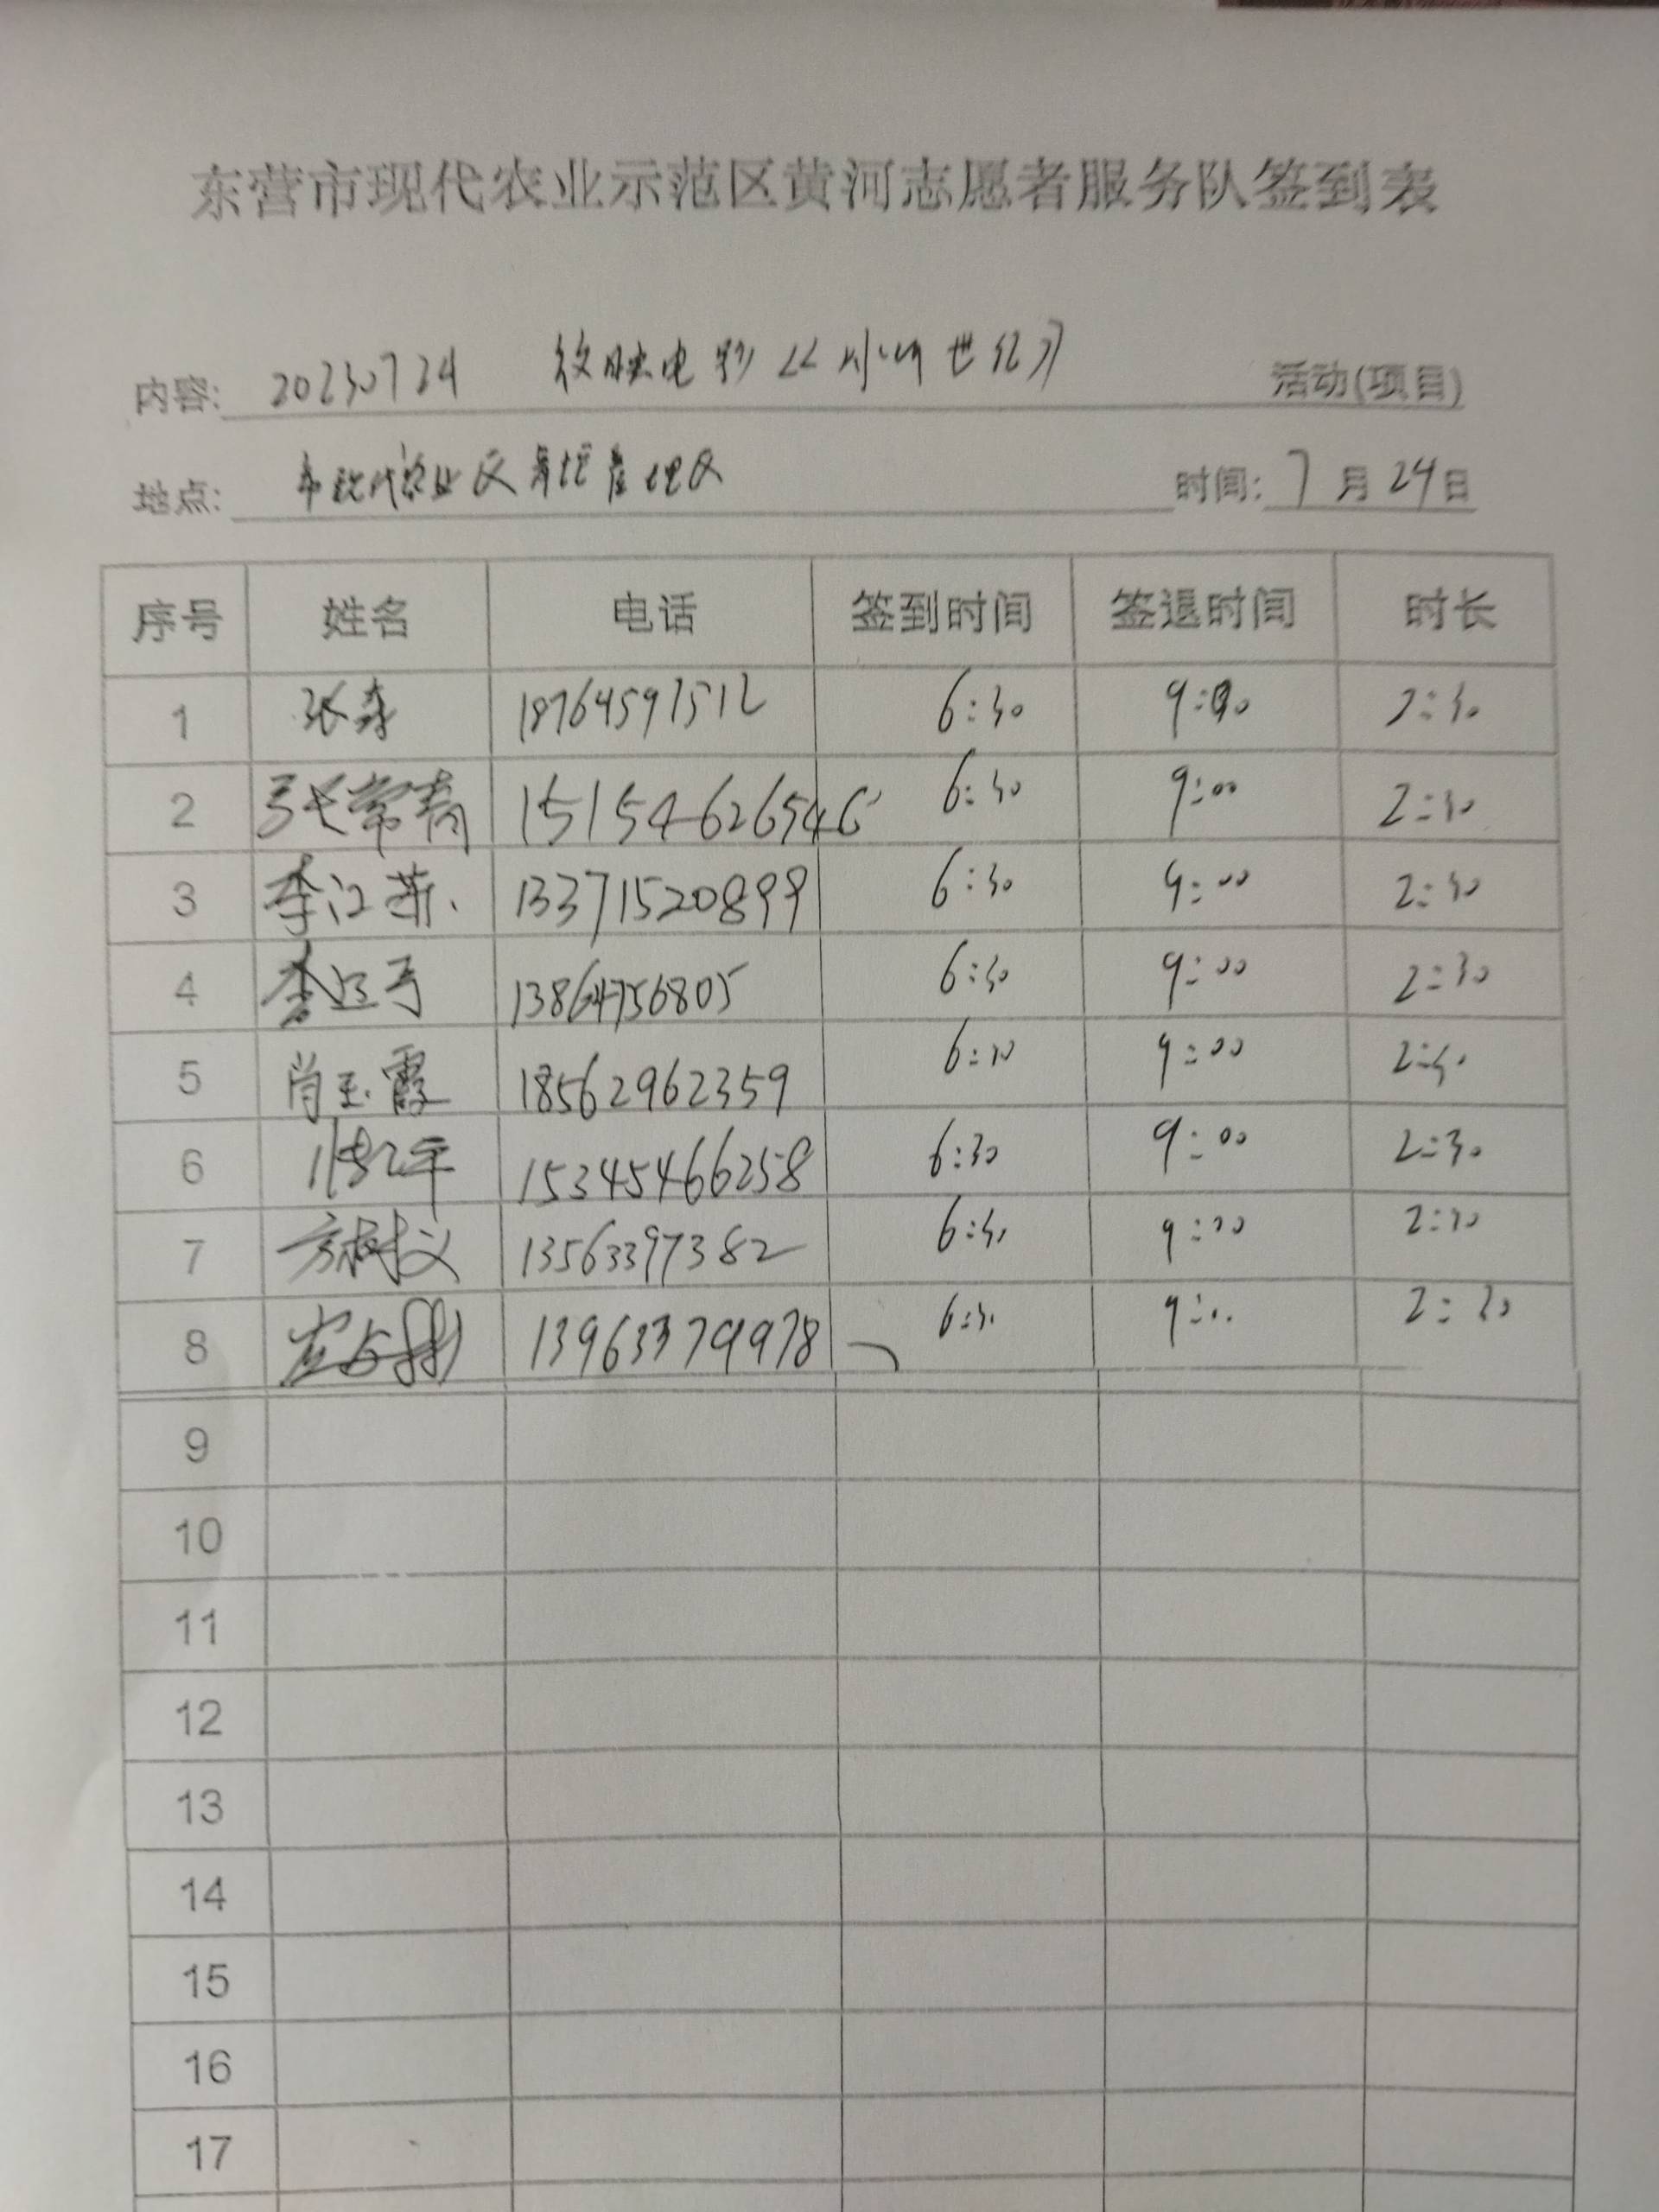 东营市现代农业示范区黄河志愿者服务队签到表
内容: 20230724 放映电影 活动(项目)
地点: 市现代农业区 时间: 7月24日
序号 姓名 电话 签到时间 签退时间 时长
1 张 18764591512 6:30 9:00 2:30
2 张常青 15154626546 6:30 9:00 2:30
3 李江 13371520899 6:30 9:00 2:30
4 李 13864756805 6:30 9:00 2:30
5 肖玉霞 18562962359 6:30 9:00 2:30
6 15345466258 6:30 9:00 2:30
7 方树义 13563397382 6:30 9:00 2:30
8 13963379978 6:30 9:00 2:30
9
10
11
12
13
14
15
16
17